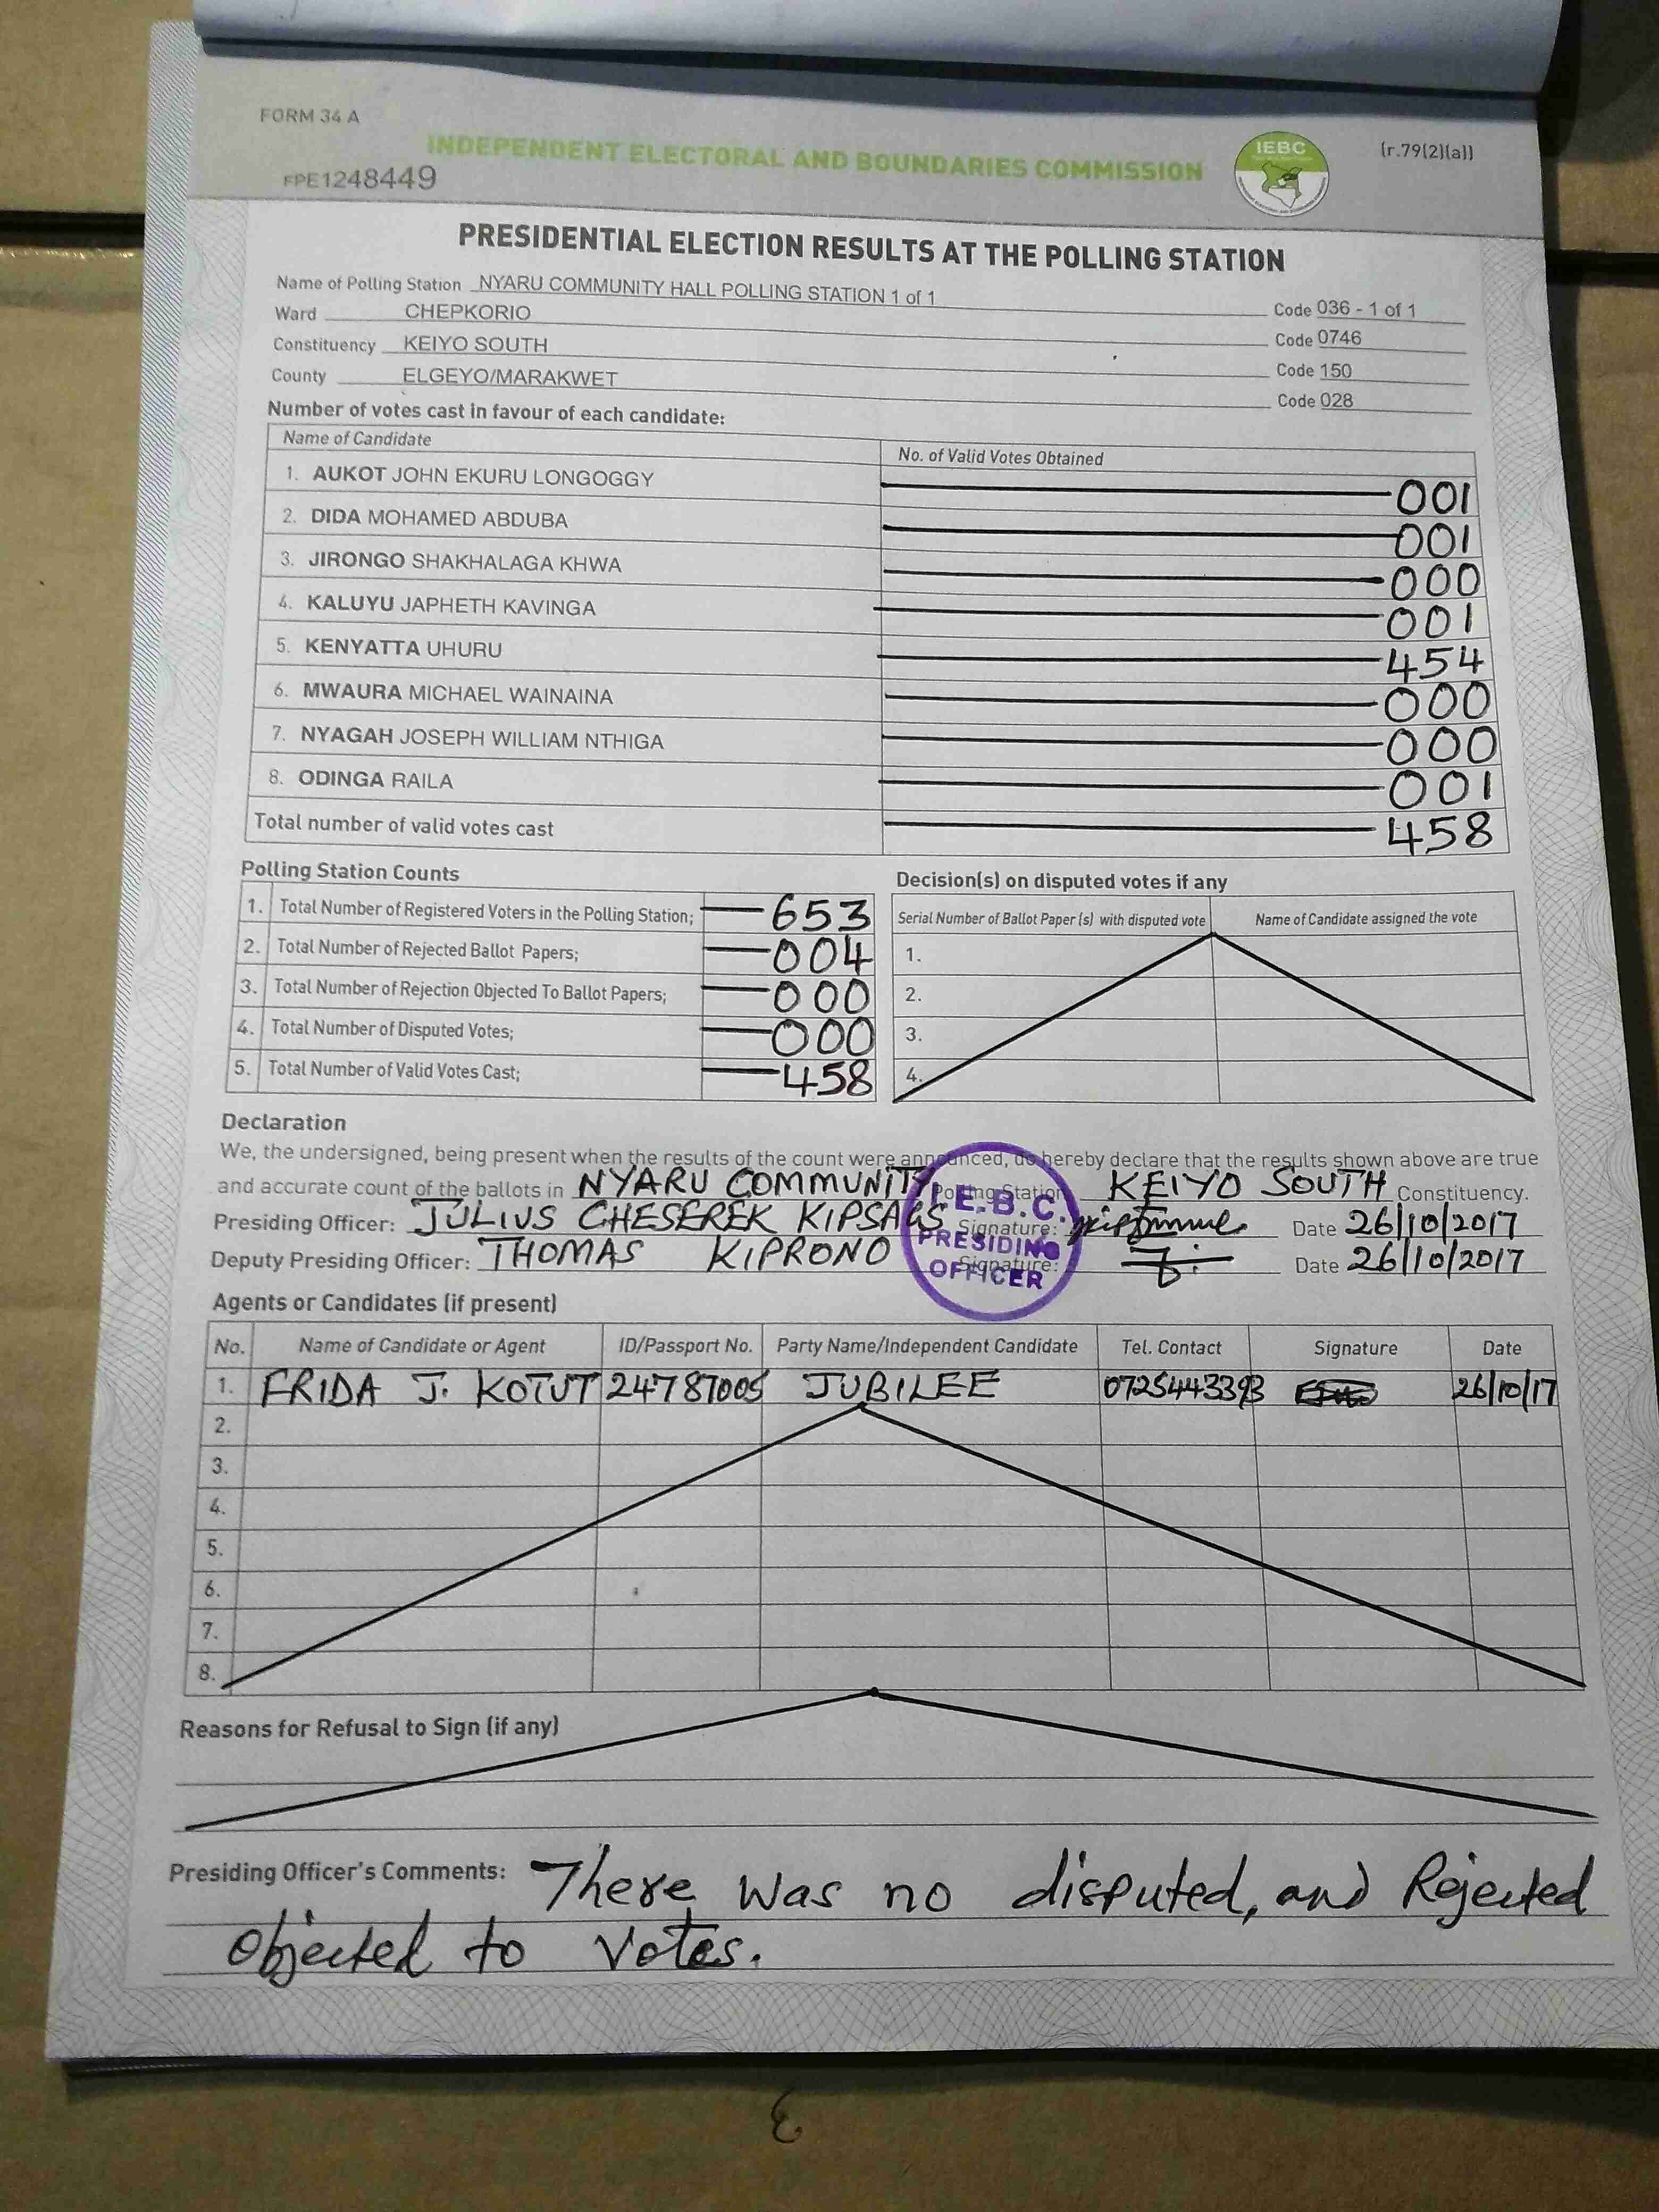 FORM 34 A
INDEPENDENT ELECTORAL AND BOUNDARIES COMMISSION
IEBC
(r.79(2)(a))
FPE1248449
PRESIDENTIAL ELECTION RESULTS AT THE POLLING STATION
Name of Polling Station NYARU COMMUNITY HALL POLLING STATION 1 of 1 Code 036 - 1 of 1
Ward CHEPKORIO Code 0746
Constituency KEIYO SOUTH Code 150
County ELGEYO/MARAKWET Code 028
Number of votes cast in favour of each candidate:
Name of Candidate No. of Valid Votes Obtained
1. AUKOT JOHN EKURU LONGOGGY 001
2. DIDA MOHAMED ABDUBA 001
3. JIRONGO SHAKHALAGA KHWA 000
4. KALUYU JAPHETH KAVINGA 001
5. KENYATTA UHURU 454
6. MWAURA MICHAEL WAINAINA 000
7. NYAGAH JOSEPH WILLIAM NTHIGA 000
8. ODINGA RAILA 001
Total number of valid votes cast 458
Polling Station Counts
1. Total Number of Registered Voters in the Polling Station; 653
2. Total Number of Rejected Ballot Papers; 004
3. Total Number of Rejection Objected To Ballot Papers; 000
4. Total Number of Disputed Votes; 000
5. Total Number of Valid Votes Cast; 458
Decision(s) on disputed votes if any
Serial Number of Ballot Paper (s) with disputed vote Name of Candidate assigned the vote
1.
2.
3.
4.
Declaration
We, the undersigned, being present when the results of the count were announced, do hereby declare that the results shown above are true
and accurate count of the ballots in NYARU COMMUNITY Polling Station KEIYO SOUTH Constituency.
Presiding Officer: JULIUS CHESEREK KIPSAGS Signature: Date 26/10/2017
Deputy Presiding Officer: THOMAS KIPRONO Signature: Date 26/10/2017
I.E.B.C.
PRESIDING
OFFICER
Agents or Candidates (if present)
No. Name of Candidate or Agent ID/Passport No. Party Name/Independent Candidate Tel. Contact Signature Date
1. FRIDA J. KOTUT 24787005 JUBILEE 0725443393 26/10/17
2.
3.
4.
5.
6.
7.
8.
Reasons for Refusal to Sign (if any)
Presiding Officer's Comments: There was no disputed, and Rejected
objected to votes.